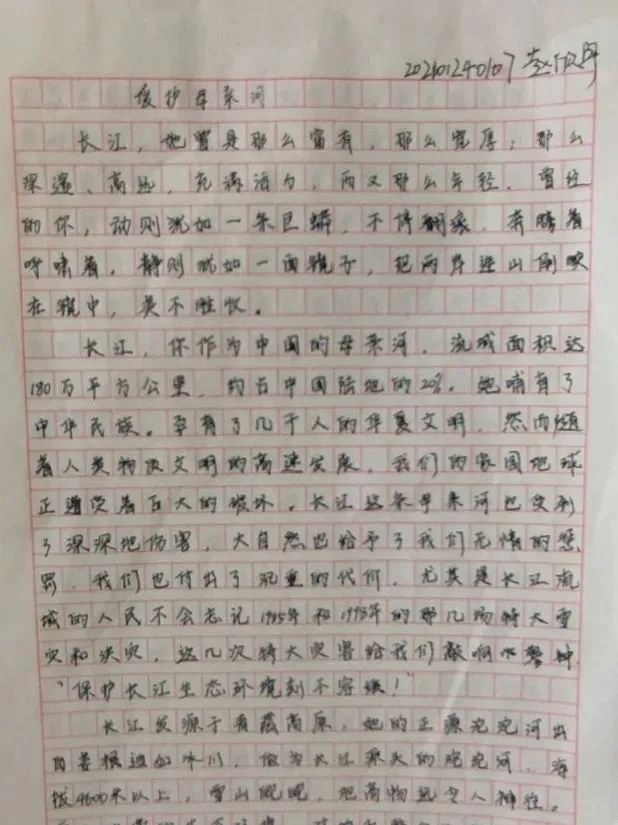 202101240107 赵
爱护母亲河
长江，她曾是那么富有，那么宽厚；那么
深邃、高远，充满活力，而又那么年轻。曾经
的你，动则犹如一条巨蟒，不停翻滚，奔腾着
呼啸着，静则犹如一面镜子，把两岸连山倒映
在镜中，美不胜收。
长江，你作为中国的母亲河，流域面积达
180万平方公里，约占中国陆地的20%。她哺育了
中华民族。孕育了几千人的华夏文明，然而随
着人类物质文明的高速发展，我们的家园地球
正遭受着巨大的破坏。长江这条母亲河也受到
了深深地伤害，大自然也给予了我们无情的惩
罚，我们也付出了沉重的代价，尤其是长江流
域的人民不会忘记1995年和1998年的那几场特大雪
灾和洪灾，这几次特大灾害给我们敲响 警钟
“保护长江生态环境刻不容缓！”
长江发源于青藏高原，她的正源沱沱河出
自姜根迪如冰川，做为长江源头的沱沱河，海
拔4600米以上，雪山皑皑，把万物 令人神往。